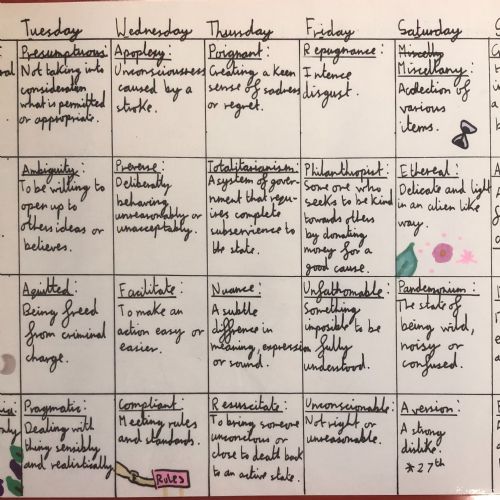 Tuesday
Wednesday
Thursday
Friday
Saturday
Presumptuous:
Not taking into
consideration
what is permitted
or appropriate.
Apoplexy:
Unconsciousness
caused by a
stroke.
Poignant:
Creating a keen
sense of sadness
or regret.
Repugnance:
Intence
disgust.
Miscelly
Miscellany:
A collection of
various
items.
Ambiguity:
To be willing to
open up to
others ideas or
believes.
Perverse:
Deliberally
behaving
unreasonably or
unacceptably.
Totalitarianism:
A system of gover-
nment that requ-
ires complete
subservience to
the state.
Philanthropist:
Some one who
seeks to be kind
towards others
by donating
money for a
good cause.
Ethereal:
Delicate and light
in an alien like
way.
Aquitted:
Being freed
from criminal
charge.
Facilitate:
To make an
action easy or
easier.
Nuance:
A subtle
difference in
meaning, expression
or sound.
Unfathomable:
Something
imposible to be
fully
understood.
Pandemonium:
The state of
being wild,
noisy or
confused.
Pragmatic:
Dealing with
thing sensibly
and realistically.
Compliant:
Meeting rules
and standards.
RULES
Resuscitate:
To bring someone
unconcious or
close to death back
to an active state.
Unconscionable:
Not right or
unreasonable.
Aversion:
A strong
dislike.
*27th